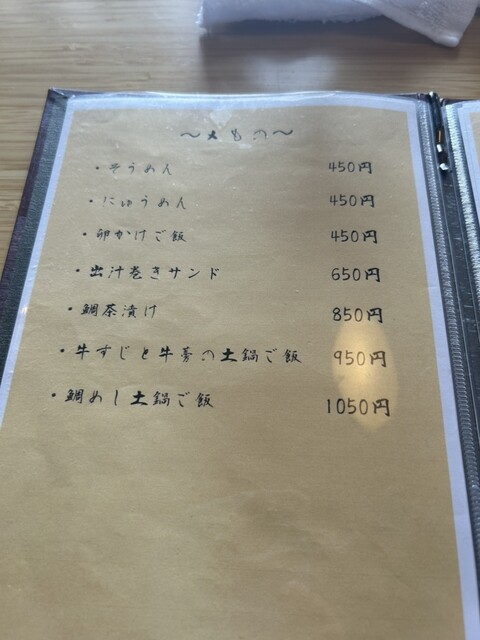 ～〆もの～
・そうめん 450円
・にゅうめん 450円
・卵かけご飯 450円
・出汁巻きサンド 650円
・鯛茶漬け 850円
・牛すじと牛蒡の土鍋ご飯 950円
・鯛めし土鍋ご飯 1050円